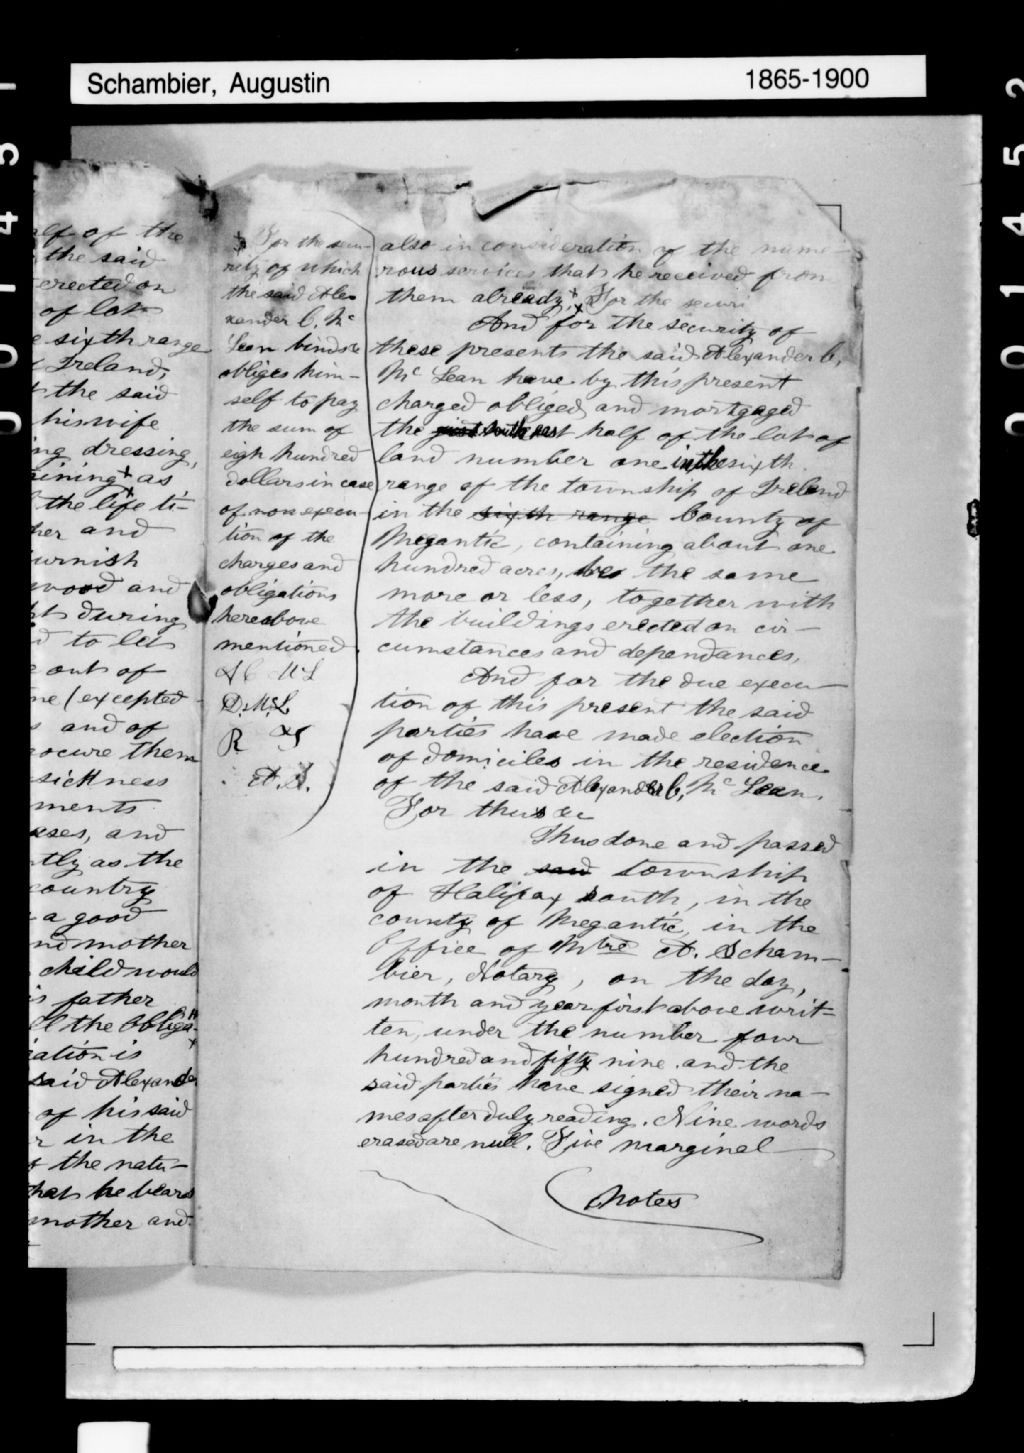 Schambier, Augustin
1865-1900
0 0 1 4 5 1
0 0 1 4 5 2
alf of the
the said
erected on
of lot
e sixth range
Ireland,
the said
his wife
ing dressing,
aining + as
the life ti-
her and
urnish
wood and
during
d to let
e out of
me (excepted
s and of
rocure them
sickness
ments.
uses, and
ntly as the
country
a good
nd mother
child would
is father
ll the obliga-
iation is
said Alexander
of his said
r in the
the natu-
that he bears
mother and
For the secu-
rity of which
the said Alex
xander C. Mc
Lean binds &
obliges him-
self to pay
the sum of
eigh hundred
dollars in case
of non execu-
tion of the
charges and
obligations
hereabove
mentioned.
A C McL
D. McL
R
A. S.
also in consideration of the nume-
rous services that he received from
them already, + For the securi
And for the security of
these presents the said Alexander C.
Mc Lean have by this present
charged obliged and mortgaged
the half of the lot of
land number one in the sixth
range of the township of Ireland
in the sixth range County of
Megantic, containing about one
hundred acres, the same
more or less, together with
the buildings erected on cir-
cumstances and dependances,
And for the due execu-
tion of this present the said
parties have made election
of domiciles in the residence
of the said Alexander C. Mc Lean.
For thus &c
Thus done and passed
in the said township
of Halifax South, in the
county of Megantic, in the
Office of Mtre A. Scham-
bier, Notary, on the day,
month and year first above writ-
ten, under the number four
hundred and fifty nine. and the
said parties have signed their na-
mes after duly reading. Nine words
erased are null. Five marginal
notes